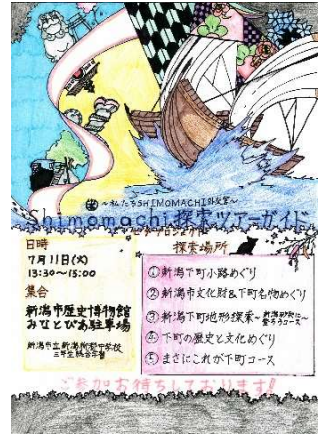 ～私たちSHIMOMACHI外交官～
Shimomachi探索ツアーガイド
日時
7月11日(火)
13:30～15:00
集合
新潟市歴史博物館
みなとぴあ駐車場
探索場所
①新潟下町小路めぐり
②新潟市文化財&下町名物めぐり
③新潟下町地形探索～新潟砂丘に登ろうコース～
④下町の歴史と文化めぐり
⑤まさにこれが下町コース
ご参加お待ちしております!